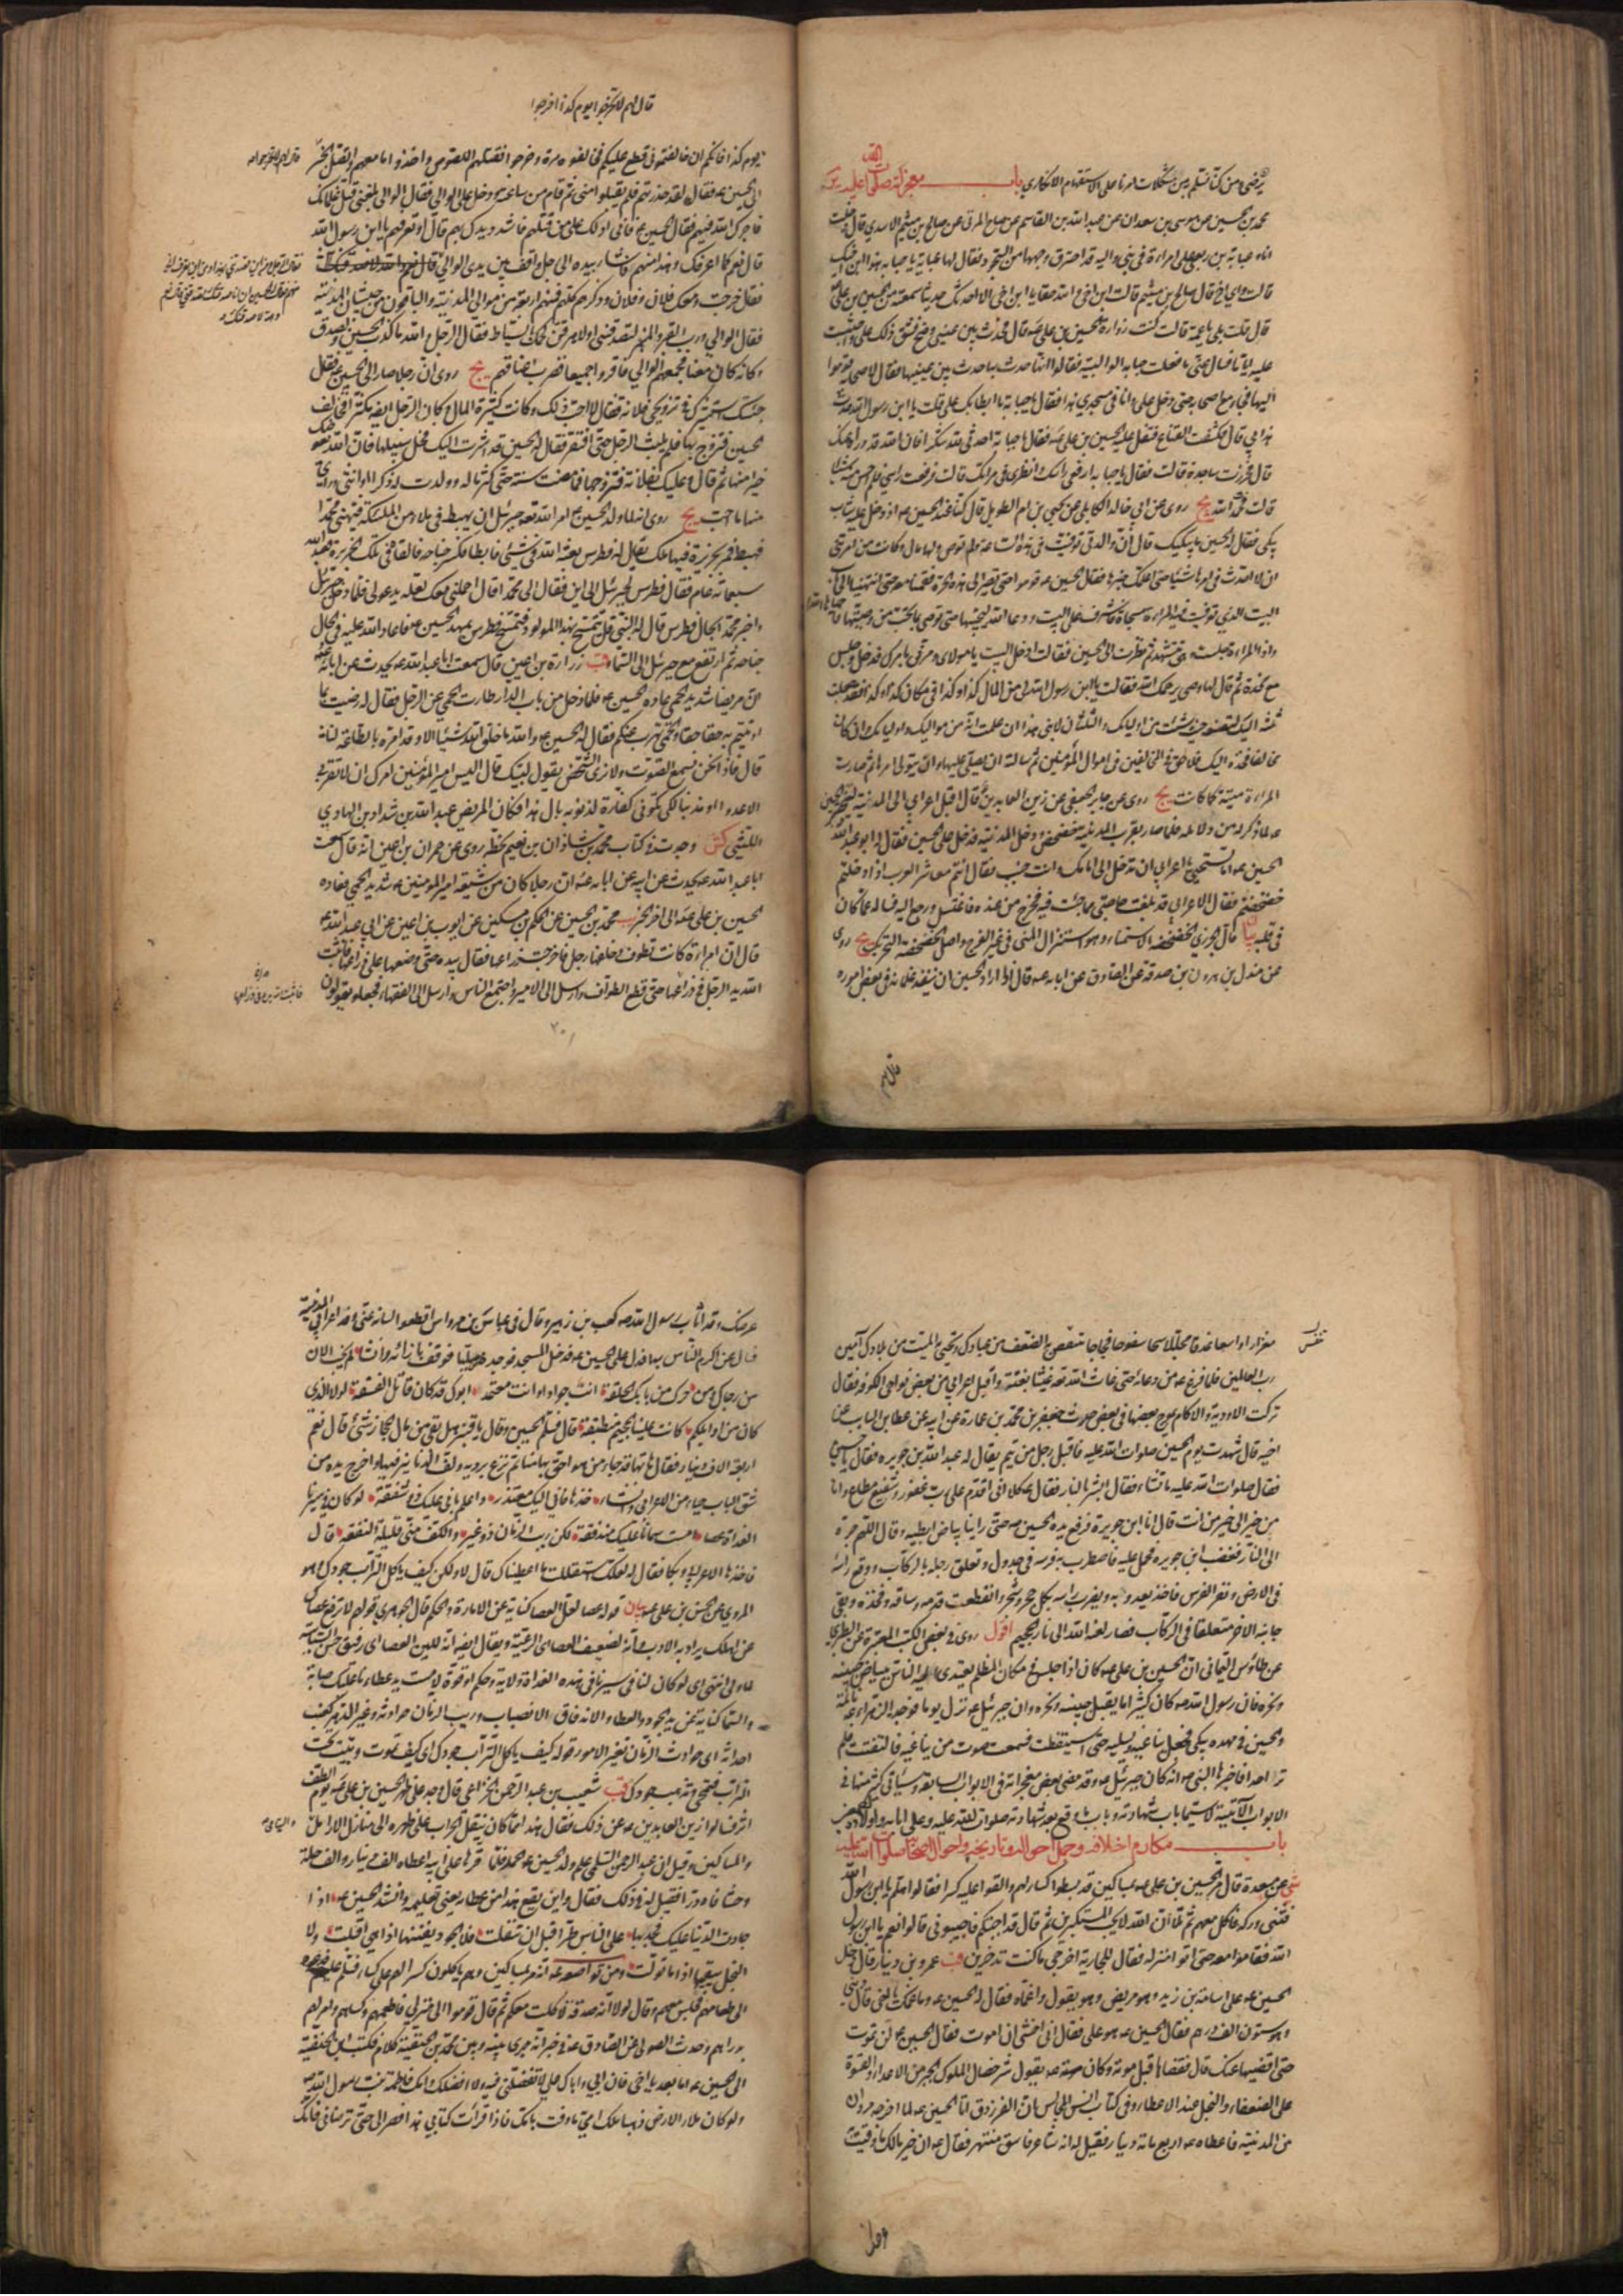 يرتضى من كتابنا سليم بن مشكلات امرنا على الاستفهام الانكاري باب معجزاته صلوات الله عليه ير
محمد بن الحسين عن موسى بن سعدان عن عبد الله بن القاسم عن صباح المزني عن صالح بن ميثم الاسدي قال دخلت
انا وعباية بن ربعي على امراءة في بني والبه قد احترق وجهها من السجود فقال لها عباية يا حبابة هذا ابن اخيك
قالت واي اخ قال صالح بن ميثم قالت ابن اخي والله حقا يا ابن اخي الا احدثك حديثا سمعته من الحسين بن علي
قال قلت بلى يا عمة قالت كنت زوارة الحسين بن علي عه قال فحدث بين عيني وضح فشق ذلك علي واحتبست
عليه اياما فسال عني ما فعلت حبابة الوالبية فقالوا انها حدث بها حدث بين عينيها فقال لاصحابه قوموا
اليها فجاء مع اصحابه حتى دخل علي وانا في مسجدي هذا فقال يا حبابة ما ابطا بك علي قلت يا ابن رسول الله حدث
هذا بي قال فكشفت القناع فتفل عليه الحسين بن علي عه فقال يا حبابة احدثي لله شكرا فان الله قد درأه عنك
قال فخررت ساجدة قالت فقال يا حبابة ارفعي راسك وانظري في مراتك قالت فرفعت راسي فلم احس منه شيئا
قالت فحمدت الله يج روى عن ابي خالد الكابلي عن يحيى بن ام الطويل قال كنا عند الحسين عه اذ دخل عليه شاب
يبكي فقال الحسين ما يبكيك قال ان والدتي توفيت في هذه الساعة ولم توص ولها مال وكانت قد امرتني
ان لا احدث في امرها شيئا حتى اعلمك خبرها فقال الحسين عه قوموا حتى نصير الى هذه الحرة فقمنا معه حتى انتهينا الى باب
البيت الذي توفيت فيه المراءة مسجاة فاشرف على البيت ودعا الله ليحييها حتى توصي بما تحب من وصيتها فاحياها الله
واذا المراءة جلست وهي تتشهد ثم نظرت الى الحسين فقالت ادخل البيت يا مولاي ومرني بامرك فدخل وجلس
على مخدة ثم قال لها وصي يرحمك الله فقالت يا ابن رسول الله لي من المال كذا وكذا في مكان كذا وكذا فقد جعلت
ثلثه اليك لتضعه حيث شئت من اوليائك والثلثان لابني هذا ان علمت انه من مواليك واوليائك وان كان
مخالفا فخذه اليك فلا حق للمخالفين في اموال المؤمنين ثم سالته ان يصلي عليها وان يتولى امرها ثم صارت
المراءة ميتة كما كانت يج روى عن جابر الجعفي عن زين العابدين عه قال اقبل اعرابي الى المدينة ليختبر الحسين
عه لما ذكر له من دلائله فلما صار بقرب المدينة خضخض ودخل المدينة فدخل على الحسين فقال له ابو عبد الله
الحسين عه اما تستحيي يا اعرابي ان تدخل الى امامك وانت جنب فقال انتم معاشر العرب اذا دخلتم
خضخضتم فقال الاعرابي قد بلغت حاجتي مما جئت فيه فخرج من عنده فاغتسل ورجع اليه فساله عما كان
في قلبه بيان قال الجزري الخضخضة الاستمناء وهو استنزال المني في غير الفرج واصل الخضخضة التحريك يج روى
عن مندل بن هرون بن صدقة عن الصادق عن ابائه عه قال اذا اراد الحسين ان ينفذ غلمانه في بعض اموره
قال لهم
قال لهم لا تخرجوا يوم كذا اخرجوا
يوم كذا فانكم ان خالفتموني قطع عليكم فخالفوه مرة وخرجوا فقتلهم اللصوص واخذوا ما معهم واتصل الخبر
الى الحسين عه فقال لقد حذرتهم فلم يقبلوا مني ثم قام من ساعته ودخل على الوالي فقال الوالي بلغني قتل غلمانك
فاجرك الله فيهم فقال الحسين عه فاني ادلك على من قتلهم فاشدد يدك بهم قال اوتعرفهم يا ابن رسول الله
قال نعم كما اعرفك وهذا منهم فاشار بيده الى رجل واقف بين يدي الوالي
فقال خرجت ومعك فلان وفلان وذكرهم كلهم فمنهم اربعة من موالي المدينة والباقون من حبشان المدينة
فقال الوالي ورب القبر والمنبر لتصدقني اولاهرقن لحمك بالسياط فقال الرجل والله ما كذب الحسين ولصدق
وكانه كان معنا فجمعهم الوالي فاقروا جميعا فضرب اعناقهم يج روى ان رجلا صار الى الحسين عه فقال
جئتك استشيرك في تزويجي فلانة فقال لا احب ذلك وكانت كثيرة المال وكان الرجل ايضا مكثرا فخالف
الحسين فتزوج بها فلم يلبث الرجل حتى افتقر فقال له الحسين قد اشرت اليك فخل سبيلها فان الله يعوضك
خيرا منها ثم قال وعليك بفلانة فتزوجها فما مضت سنة حتى كثر ماله وولدت له ذكرا وانثى وراى
منها ما احب يج روى انه لما ولد الحسين عه امر الله تعه جبرئيل ان يهبط في ملاء من الملئكة فيهنئ محمدا
فهبط فمر بجزيرة فيها ملك يقال له فطرس بعثه الله في شيئ فابطا فكسر جناحه فالقاه في تلك الجزيرة فعبد الله
سبعمائة عام فقال فطرس لجبرئيل الى اين فقال الى محمد قال احملني معك لعله يدعو لي فلما دخل جبرئيل
واخبر محمدا بحال فطرس قال له النبي قل يتمسح بهذا المولود فتمسح فطرس بمهد الحسين عه فاعاد الله عليه في الحال
جناحه ثم ارتفع مع جبرئيل الى السماء قب زرارة بن اعين قال سمعت ابا عبد الله عه يحدث عن ابائه عه
ان مريضا شديد الحمى عاده الحسين عه فلما دخل من باب الدار طارت الحمى عن الرجل فقال له رضيت بما
اوتيتم به حقا حقا والحمى تهرب عنكم فقال له الحسين عه والله ما خلق الله شيئا الا وقد امره بالطاعة لنا
قال فاذا نحن نسمع الصوت ولا نرى الشخص يقول لبيك قال اليس امير المؤمنين امرك ان لا تقربي
الا عدوا او مذنبا لكي تكوني كفارة لذنوبه فما بال هذا فكان المريض عبد الله بن شداد بن الهادي
الليثي كش وجدت في كتاب محمد بن شاذان بن نعيم بخطه روى عن حمران بن اعين انه قال سمعت
ابا عبد الله عه يحدث عن ابيه عن ابائه عه ان رجلا كان من شيعة امير المؤمنين عه شديد الحمى فعاده
الحسين بن علي عه الى اخر الخبر يب محمد بن الحسين عن الحكم بن مسكين عن ايوب بن اعين عن ابي عبد الله عه
قال ان امراءة كانت تطوف وخلفها رجل فاخرجت ذراعها فقال بيده حتى وضعها على ذراعها فاثبت
الله يد الرجل في ذراعها حتى قطع الطواف وارسل الى الامير واجتمع الناس وارسل الى الفقهاء فجعلوا يقولون
٢٠١
مغزارا واسعا غدقا مجللا سحا سفوحا فجاجا تنفس به الضعف من عبادك وتحيي به الميت من بلادك آمين
رب العالمين فلما فرغ عه من دعائه حتى غاث الله تعه غيثا بغتة واقبل اعرابي من بعض نواحي الكوفة فقال
تركت الاودية والاكام يموج بعضها في بعض حدث جعفر بن محمد بن عمارة عن ابيه عن عطا بن السايب عن
اخيه قال شهدت يوم الحسين صلوات الله عليه فاقبل رجل من تيم يقال له عبد الله بن جويره فقال يا حسين
فقال صلوات الله عليه ما تشاء فقال ابشر بالنار فقال عه كلا اني اقدم على رب غفور وشفيع مطاع وانا
من خير الى خير من انت قال انا ابن جويرة فرفع يده الحسين عه حتى راينا بياض ابطيه وقال اللهم جره
الى النار فغضب ابن جويره فحمل عليه فاضطرب به فرسه في جدول وتعلق رجله بالركاب ووقع راسه
في الارض ونفر الفرس فاخذ يعدو به ويضرب راسه بكل حجر وشجر وانقطعت قدمه وساقه وفخذه وبقي
جانبه الاخر متعلقا في الركاب فصار لعنه الله الى نار الجحيم اقول روي في بعض الكتب المعتبرة عن الطبري
عن طاوس اليماني ان الحسين بن علي عه كان اذا جلس في مكان المظلم يهتدي اليه الناس ببياض جبينه
ونحره فان رسول الله صه كان كثيرا ما يقبل جبينه ونحره وان جبرئيل عه نزل يوما فوجد الزهراء عه نائمة
والحسين في مهده يبكي فجعل يناغيه ويسليه حتى استيقظت فسمعت صوت من يناغيه فالتفتت فلم
تر احدا فاخبرها النبي صه انه كان جبرئيل عه وقد مضى بعض معجزاته في الابواب السابقة وسيأتي كثير منها في
الابواب الآتية لا سيما باب شهادته وباب ما وقع بعد شهادته صلوات الله عليه وعلى ابائه واولاده
باب مكارم اخلاقه وجمل احواله وتاريخه واحوال اصحابه صلوات الله عليه
شي عن مسعدة قال مر الحسين بن علي عه بمساكين قد بسطوا كساء لهم والقوا عليه كسرا فقالوا هلم يا ابن رسول الله
فثنى وركه فاكل معهم ثم تلا ان الله لا يحب المستكبرين ثم قال قد اجبتكم فاجيبوني قالوا نعم يا ابن رسول
الله فقاموا معه حتى اتوا منزله فقال للجارية اخرجي ما كنت تدخرين قب عمرو بن دينار قال دخل
الحسين عه على اسامة بن زيد وهو مريض وهو يقول واغماه فقال له الحسين عه وما غمك يا اخي قال ديني
وهو ستون الف درهم فقال الحسين عه هو علي فقال اني اخشى ان اموت فقال الحسين عه لن تموت
حتى اقضيها عنك قال فقضاها قبل موته وكان عه يقول شر خصال الملوك الجبن من الاعداء والقسوة
على الضعفاء والبخل عند الاعطاء وفي كتاب انس المجالس ان الفرزدق اتى الحسين عه لما اخرجه مروان
من المدينة فاعطاه عه اربعمائة دينار فقيل له انه شاعر فاسق منتهر فقال عه ان خير مالك ما وقيت به
عرضك وقد اثاب رسول الله صه كعب بن زهير وقال في عباس بن مرداس اقطعوا لسانه عني وفد اعرابي المدينة
فسال عن اكرم الناس بها فدل على الحسين عه فدخل المسجد فوجده مصليا فوقف بازائه وانشا لم يخب الان
من رجاك ومن حرك من بابك الحلقة انت جواد وانت معتمد ابوك قد كان قاتل الفسقة لولا الذي
كان من اوايلكم كانت علينا الجحيم منطبقة قال فسلم الحسين وقال يا قنبر هل بقي من مال الحجاز شئ قال نعم
اربعة الاف دينار فقال هاتها قد جاء من هو احق بها منا ثم نزع برديه ولف الدنانير فيها واخرج يده من
شق الباب حياء من الاعرابي وانشاء خذها فاني اليك معتذر واعلم باني عليك ذو شفقة لو كان في سيرنا
الغداة عصا امست سمانا عليك مندفقة لكن ريب الزمان ذو غير والكف مني قليلة النفقة قال
فاخذها الاعرابي وبكا فقال له لعلك استقللت ما اعطيناك قال لا ولكن كيف ياكل التراب جودك وهو
المروي عن الحسن بن علي عه بيان قوله عصا لعل العصا كناية عن الامارة والحكم قال الجوهري قولهم لا ترفع عصاك
عن اهلك يراد به الادب وانه لضعيف العصا اي الرعية ويقال ايضا انه للين العصا اي رفيق حسن السياسة
لما ولي انتهى اي لو كان لنا في سيرنا في هذه الغداة ولاية وحكم او قوة لامست يد عطائنا عليك صابة
والسماء كناية عن يد الجود والعطاء والاندفاق الانصباب وريب الزمان حوادثه وغير الدهر كعنب
احداثه اي حوادث الزمان تغير الامور قوله كيف ياكل التراب جودك اي كيف تموت وتبيت تحت
التراب فتمحى وتذهب جودك قب شعيب بن عبد الرحمن الخزاعي قال وجد على ظهر الحسين بن علي عه يوم الطف
اثر فسالوا زين العابدين عه عن ذلك فقال هذا مما كان ينقل الجراب على ظهره الى منازل الارامل
والمساكين وقيل ان عبد الرحمن السلمي علم ولد الحسين عه الحمد فلما قرءها على ابيه اعطاه الف دينار والف حلة
وحشا فاه درا فقيل له في ذلك فقال واين يقع هذا من عطائه يعني تعليمه وانشد الحسين عه اذا
جادت الدنيا عليك فجد بها على الناس طرا قبل ان تتفلت فلا الجود يفنيها اذا هي اقبلت ولا
البخل يبقيها اذا ما تولت ومن تواضعه عه انه مر بمساكين وهم ياكلون كسرا لهم على كساء فسلم عليهم فدعوه
الى طعامهم فجلس معهم وقال لولا انه صدقة لاكلت معكم ثم قال قوموا الى منزلي فاطعمهم وكساهم وامر لهم
بدراهم وحدث الصولي عن الصادق عه في خبر انه جرى بينه وبين محمد بن الحنفية كلام فكتب ابن الحنفية
الى الحسين عه اما بعد يا اخي فان ابي واباك علي لا تفضلني فيه ولا افضلك وامك فاطمة بنت رسول الله صه
ولو كان ملاء الارض ذهبا ملك امي ما وفت بامك فاذا قرأت كتابي هذا فصر الى حتى ترضاني فانك